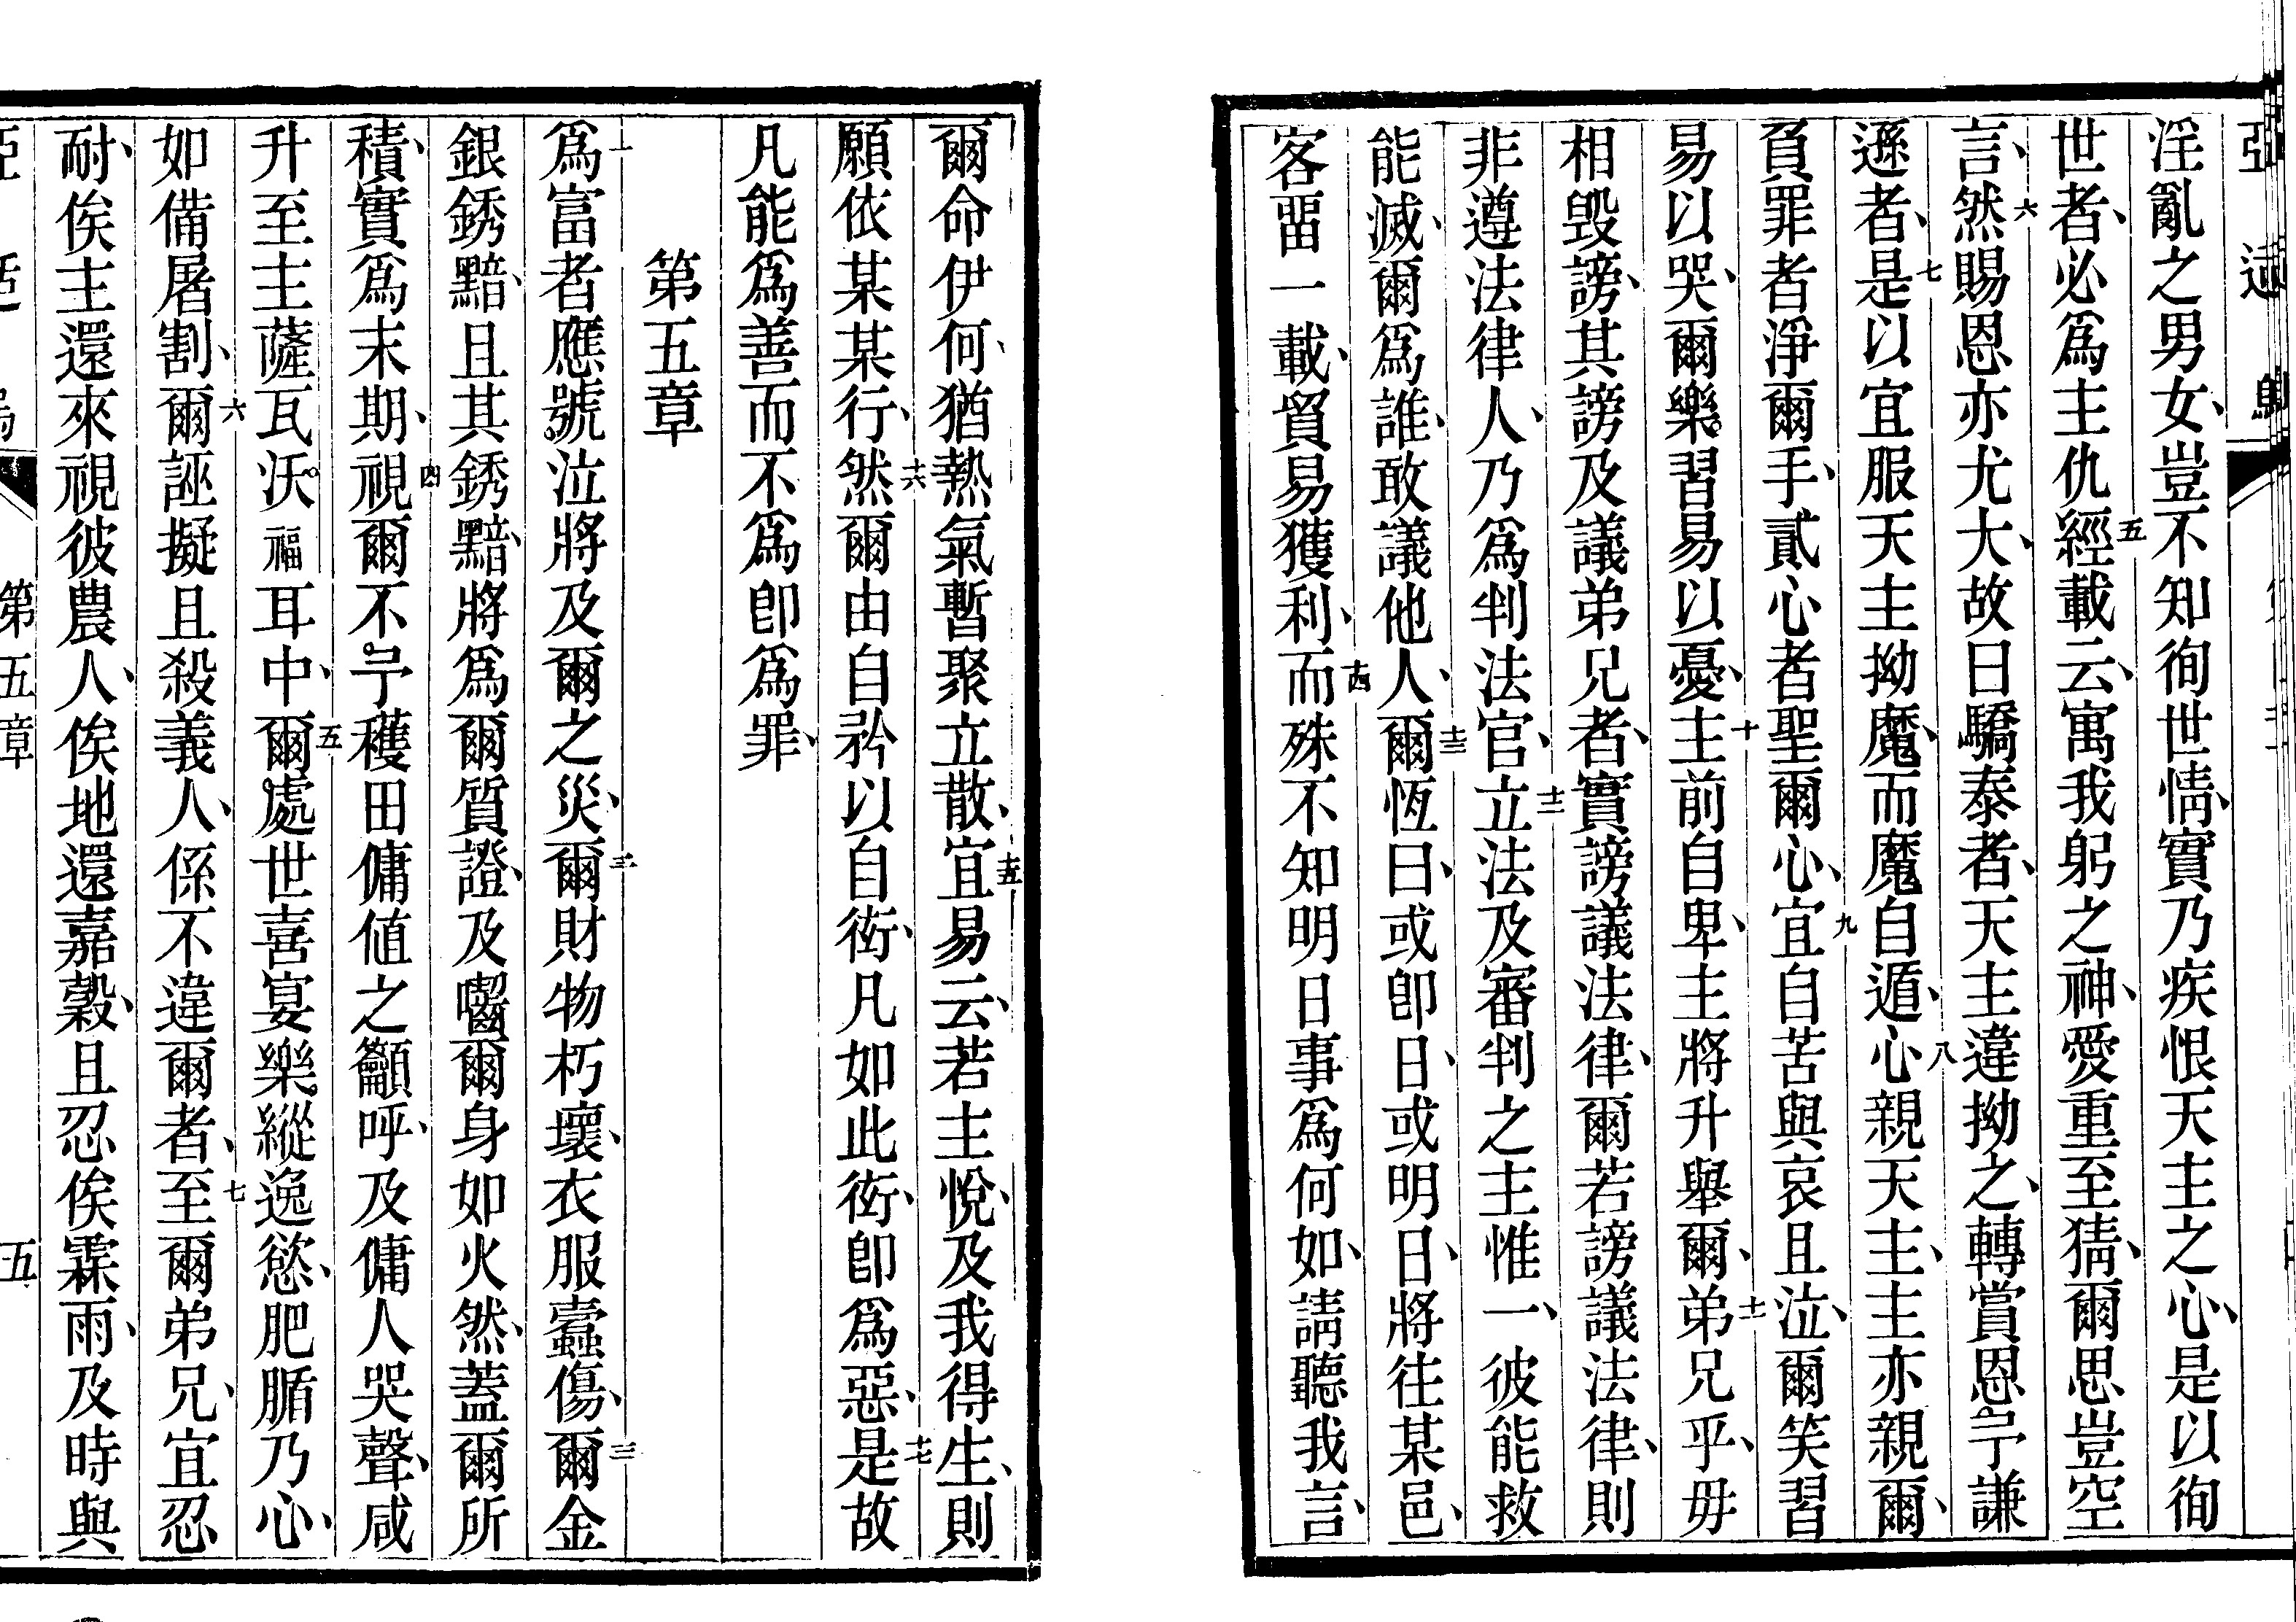 淫亂之男女、豈不知徇世情、實乃疾恨天主之心、是以徇
世者、必爲主仇五經載云、寓我躬之神、愛重至猜、爾思豈空
言、六然賜恩亦尤大、故曰驕泰者、天主違拗之、轉賞恩。
遜者、七是以宜服天主拗魔、而魔自遁、八心親天主、主亦親爾、
負罪者淨爾手、貳心者聖爾心、九宜自苦與哀且泣、爾笑習
易以哭、爾樂。習易以憂、十主前自卑、主將升舉爾、十一弟兄乎、毋
相毀謗、其謗及議弟兄者、實謗議法律、爾若謗議法律、則
非遵法律人、乃爲判法官、十二立法及審判之主惟一、彼能救
能滅、爾爲誰、敢議他人、十三爾恆曰、或卽日、或明日、將往某邑、
客畱一載、貿易獲利、十四而殊不知明日事爲何如、請聽我言、
爾命伊何、猶熱氣暫聚立散、十五宜易云、若主悅、及我得生、則
願依某某行、十六然爾由自矜以自衒、凡如此衒、卽爲惡、十七是故
凡能爲善而不爲卽爲罪、
第五章
一爲富者應號。泣將及爾之災、二爾財物朽壞、衣服蠹傷、三爾金
銀銹黯、且其銹黯、將爲爾質證、及嚙爾身如火然、蓋爾所
積、實爲末期、四視爾不。穫田傭値之籲呼、及傭人哭聲、咸
升至主薩瓦沃。福耳中、五爾處。世喜宴樂。縱逸慾、肥腯乃心、
如備屠割、六爾誣擬且殺義人、係不違爾者、七至爾弟兄、宜忍
耐、俟主還來、視彼農人、俟地還嘉穀、且忍俟霖雨、及時與
第五章
五